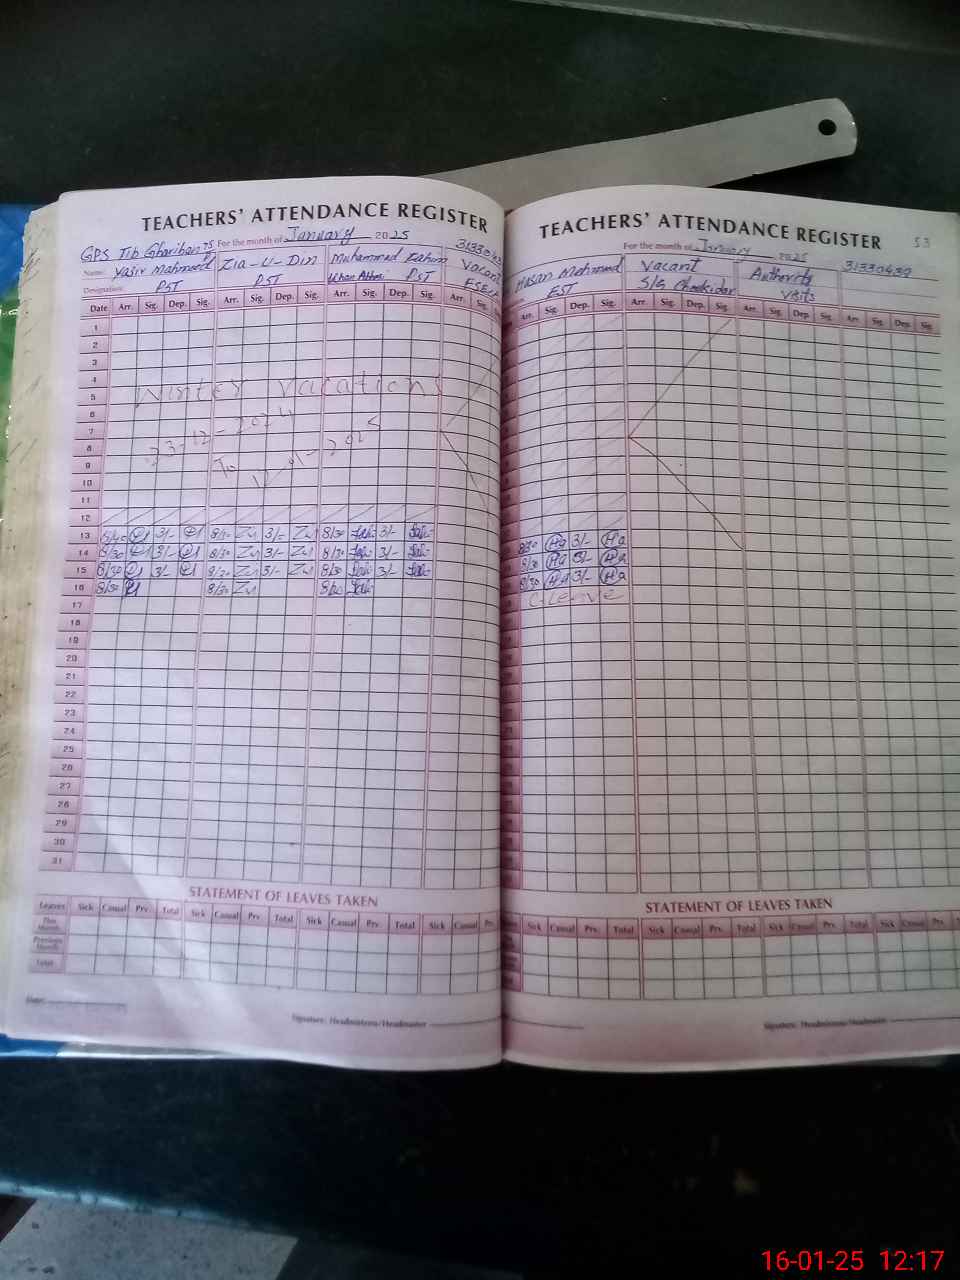 TEACHERS' ATTENDANCE REGISTER
For the month of January 2025
GPS Tib Ghariban
313304
Name: Yasir Mahmood Zia-U-Din Muhammad Vacant
Designation: PST PST PST ESE
Date Arr. Sig. Dep. Sig. Arr. Sig. Dep. Sig. Arr. Sig. Dep. Sig. Arr. Sig.
1
2
3
4
5
Winter Vacations
6
7
23-12-2024
8
To
9
10
11
12
13 3/- 3/- 8/30 3/-
14 8/30 3/- 8/30 3/- 8/30 3/-
15 8/30 3/- 8/30 3/- 8/30 3/-
16 8/30 8/30
17
18
19
20
21
22
23
24
25
26
27
28
29
30
31
STATEMENT OF LEAVES TAKEN
Leaves Sick Casual Prv. Total Sick Casual Prv. Total Sick Casual Prv. Total Sick Casual Prv.
This Month
Previous Month
Total
Signature: Headmistress/Headmaster
TEACHERS' ATTENDANCE REGISTER
53
For the month of January 2025
Hasan Mahmood Vacant Authority 31330439
EST S/G Chowkidar Visits
Arr. Sig. Dep. Sig. Arr. Sig. Dep. Sig. Arr. Sig. Dep. Sig. Arr. Sig. Dep. Sig.
8/30 Ha 3/- Ha
8/30 Ha 3/- Ha
8/30 Ha 3/- Ha
C-Leave
STATEMENT OF LEAVES TAKEN
Sick Casual Prv. Total Sick Casual Prv. Total Sick Casual Prv. Total Sick Casual Prv.
Signature: Headmistress/Headmaster
16-01-25 12:17